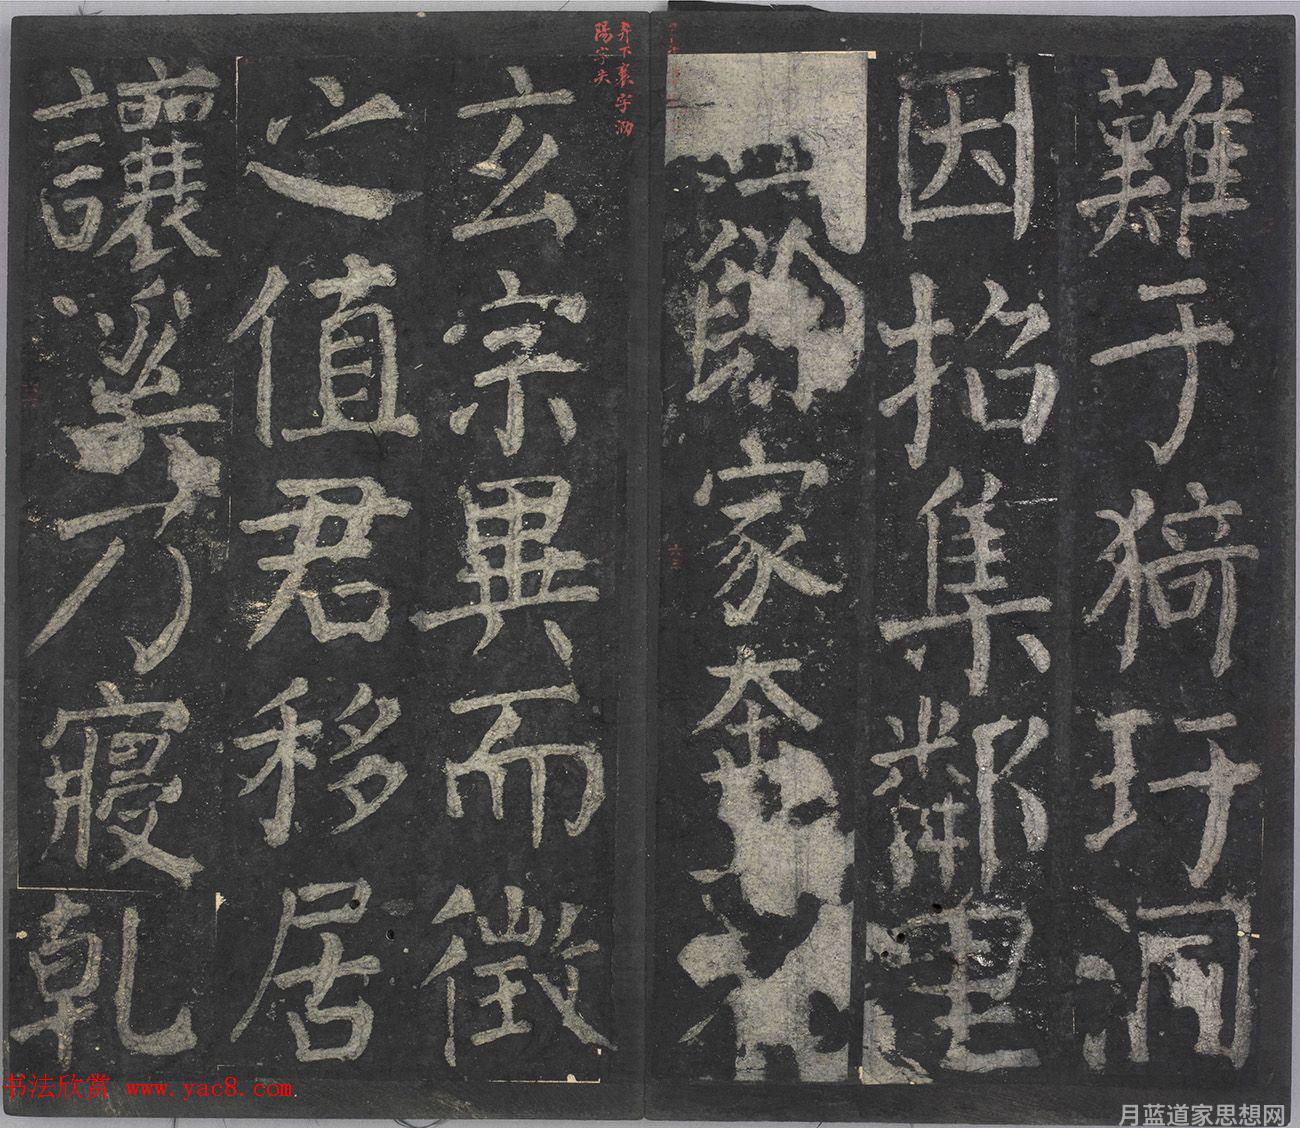 難于猗玗洞
因招集鄰里
餘家奔
玄宗異而徵
之值君移居
讓溪乃寢乾
奔下襄字泐
陽字失
书法欣赏 www.yac8.com
月蓝道家思想网